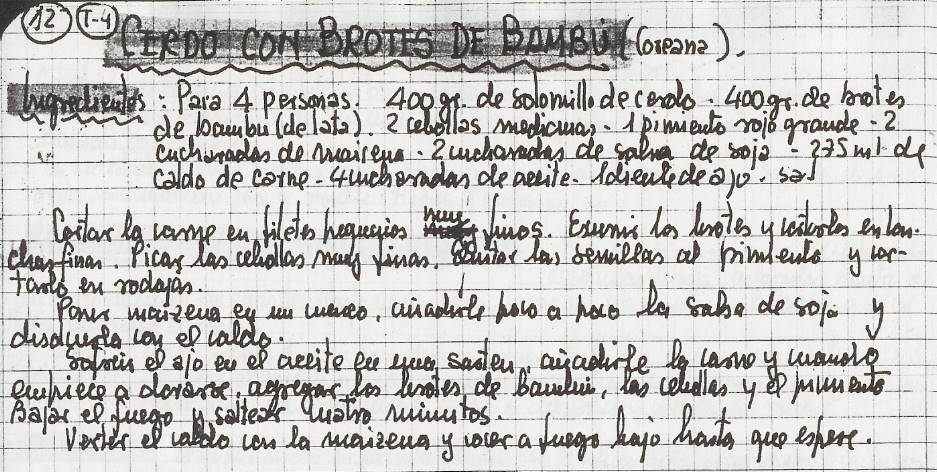 12 T-4 CERDO CON BROTES DE BAMBÚ (Coreana).
Ingredientes: Para 4 personas. 400 gr. de solomillo de cerdo - 400 gr. de brotes
de bambu (de lata). 2 cebollas medianas - 1 pimiento rojo grande - 2
cucharadas de maizena - 2 cucharadas de salsa de soja - 275 ml de
caldo de carne - 4 cucharadas de aceite - 1 diente de ajo - sal
Cortar la carne en filetes pequeños muy finos. Exurrir los brotes y cortarlos en lon-
chas finas. Picar las cebollas muy finas. Quitar las semillas al pimiento y cor-
tarlo en rodajas.
Poner maizena en un cuenco, añadirle poco a poco la salsa de soja y
disolverla con el caldo.
Sofreir el ajo en el aceite en una sarten, añadirle la carne y cuando
empiece a dorarse, agregar los brotes de bambu, las cebollas y el pimiento
Bajar el fuego y saltear cuatro minutos.
Verter el caldo con la maizena y cocer a fuego bajo hasta que espese.